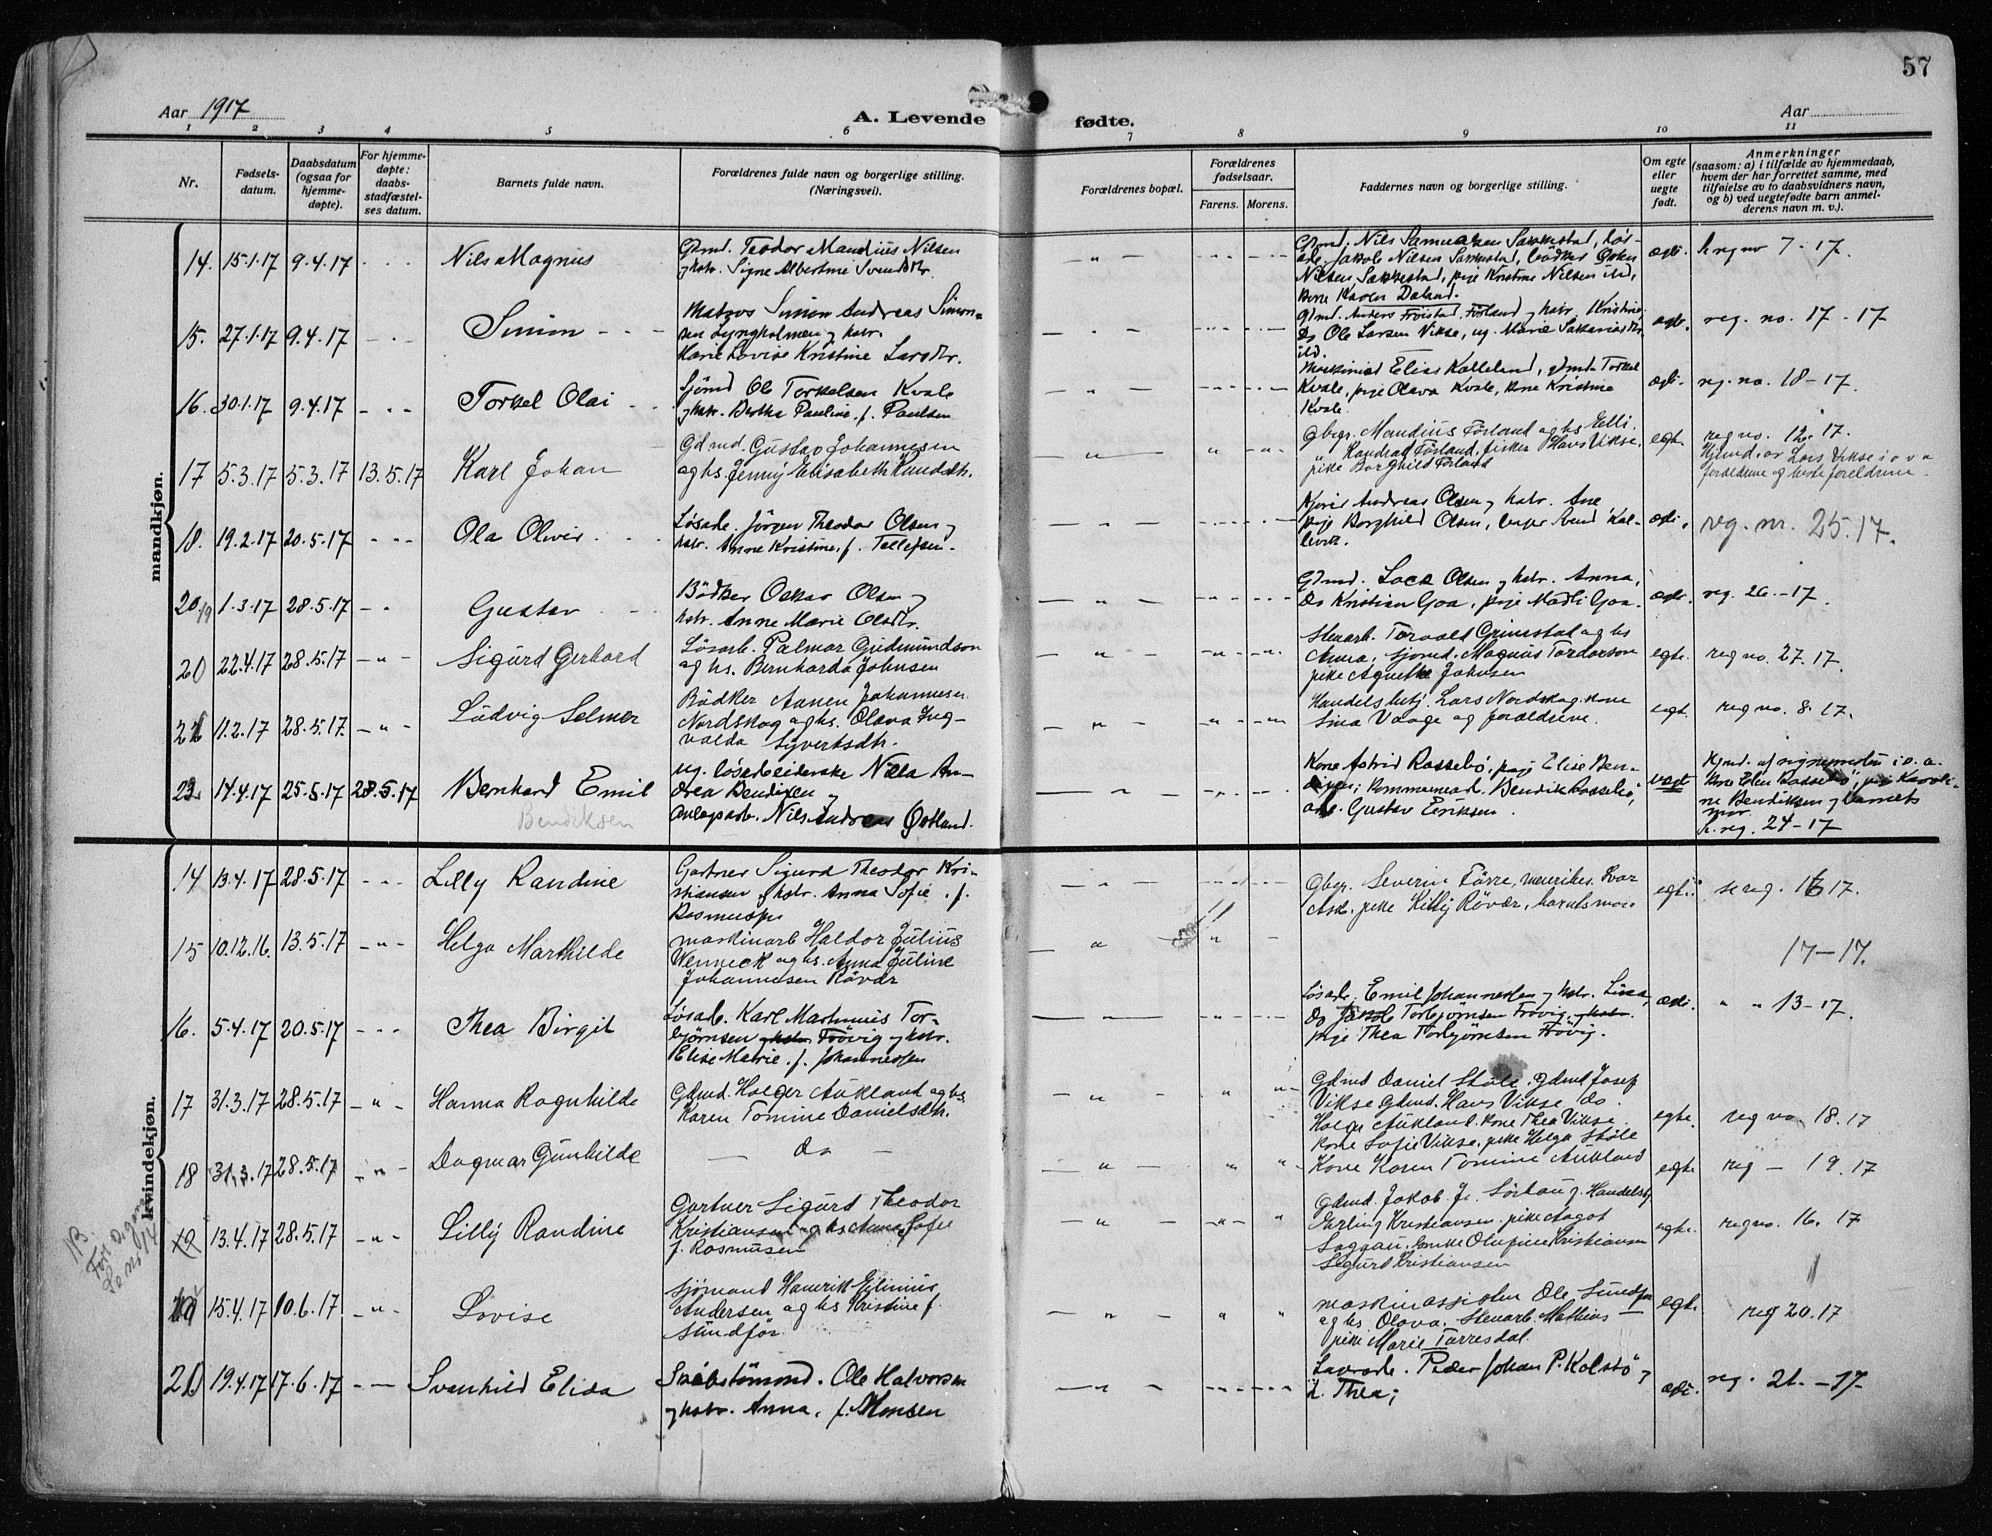 57
Aar 1917
A. Levende fødte.
Aar
1 2 3 4 5 6 7 8 9 10 11
Nr.
Fødsels-
datum.
Daabsdatum
(ogsaa for
hjemme-
døpte).
For hjemme-
døpte:
daabs-
stadfæstel-
ses datum.
Barnets fulde navn.
Forældrenes fulde navn og borgerlige stilling.
(Næringsvei).
Forældrenes bopæl.
Forældrenes
fødselsaar.
Farens. Morens.
Faddernes navn og borgerlige stilling.
Om egte
eller
uegte
født.
Anmerkninger
(saasom: a) i tilfælde av hjemmedaab,
hvem der har forrettet samme, med
tilføielse av to daabsvidners navn,
og b) ved uegtefødte barn anmel-
derens navn m. v.).
mandkjøn.
14. 15.1.17 9.4.17 Nils Magnus
Gdmd. Teodor Mandius Nilsen
og hstr. Signe Albertine Svendsdtr.
Gdmd. Nils Samuelsen Sakkestad, løs-
arb. Jakob Nilsen Sakkestad, bødker
Nilsen Sakkestad, pige Kristine Nilsen
Kone Karen
egte. reg no 7-17.
15. 27.1.17 9.4.17 Simon
Matros Simon Andreas Simon-
sen Lyngholmen og hstr.
Marie Lovise Kristine Larsdtr.
Gdmd. Anders Frøistad, Førland og hstr. Kristine
Do Ole Larsen Vikse, ug. Marie
egte. reg. no. 17-17
16. 30.1.17 9.4.17 Torkel Olai
Sjömd Ole Torkelsen Kvale
og hstr. Bertha Pauline, f. Paulsen
Maskinist Elias Kalleland, Torkel
Kvale, pige Olava Kvale, kone Kristine
Kvale.
egte. reg. no. 18-17.
17 5.3.17 5.3.17 13.5.17 Karl Johan
Gdmd. Gustav Johannesen
og hs. Jenny Elisabeth Knudsdtr.
Gbgr. Mandius Førland og hs Elli.
" Kondrad Førland, fisker Hans Vikse,
pike Borghild Førland
egte. reg no. 12. 17.
Hjmd. av Lars Vikse i o v a
forældrene og besteforeldrene.
18. 19.2.17 20.5.17 Ola Oliver
Løsarb. Jørgen Theodor Olsen og
hstr. Anne Kristine, f. Tellefsen.
Andreas Olsen og hstr. Ane
pige Borghild Olsen,
egte. reg. nr. 25.17.
20 19 1.3.17 28.5.17 Gustav
Bödker Oskar Olsen og
hstr. Anne Marie Olsdtr.
Gdmd. Olsen og hstr. Anna,
Do Kristian Goa, pige Madli Goa.
egte. reg. 26-17.
20 22.4.17 28.5.17 Sigurd Gerhard
Løsarb. Palmar Gudmundson
og hs. Bernharda Johnsen
Stenarb. Torvald Grimstad og hs
Anna, Sjömd. Magnus Tordarson
pike Agnethe Johnsen
egte. reg no. 27. 17.
22 11.2.17 28.5.17 Ludvig Selmer
Bödker Aanen Johannesen
Nordskog og hs. Olava Ing-
valda Syvertsdtr.
Handelsbetj. Lars Nordskog, kone
Sina Vaage og forældrene.
egte. reg no. 8. 17.
23. 14.4.17 25.5.17 28.5.17 Bernhard Emil
Bendiksen
ug. løsarbeiderske Nilla An-
drea Bendixen og
Anlægsarb. Nils Andreas Østland.
Kone Astrid Rossebö, pige Elise Ben-
diksen; Kommunearb. Bendik Rossebö,
arb. Gustav Eriksen.
uegt. Hjmd. af i o. a.
kone Elen Rossebö, pige Karoli-
ne Bendiksen og barnets
mor.
k. reg. 24-17
kvindekjøn.
14 13.4.17 28.5.17 Lilly Randine
Gartner Sigurd Theodor Kri-
stiansen og hstr. Anna Sofie, f.
Rasmussen
Gbgr. Severin Førre, Ivar
Ask, pike Kitty Røvær, barnets mor.
egte. se reg. 16 17.
15 10.12.16. 13.5.17 Helga Marthilde
maskinarb Haldor Julius
Wenneck og hs. Anna Juline
Johannesen Røvær
17-17.
16. 5.4.17 20.5.17 Thea Birgit
Løsarb. Karl Martinius Tor-
björnsen og hstr. Frövig og hstr.
Elise Marie, f. Johannessen
Løsarb. Emil Johannessen og hstr. Lina,
Do Jakob Torbjørnsen Frövig, og hstr.
pige Thea Torbjørnsen Frövig.
egte. " " 13-17.
17 31.3.17 28.5.17 Hanna Ragnhilde
Gdmd. Holger Aukland og hs.
Karen Tomine Danielsdtr.
Gdmd Daniel Støle, Gdmd Josef
Vikse Gdmd. Hans Vikse, do.
Holger Aukland, kone Thea Vikse
kone Sofie Vikse, pike Helga Støle
egte. reg no. 18. 17
18 31.3.17 28.5.17 Dagmar Gunhilde
— do —
Kone Karen Tomine Aukland
egte reg - 19. 17
NB.
For. 2. gang
Se no 14
19 13.4.17 28.5.17 Lilly Randine
Gartner Sigurd Theodor
Kristiansen og hs Anna Sofie
f. Rasmusen
Gdmd. Jakob Jr. Sørhaug, Handelsbj
Erling Kristiansen, pike Aagot
Saggau, Enke Olufine Kristiansen
Sigurd Kristiansen
egte. reg no. 16. 17
19 15.4.17 10.6.17 Lovise
Sjømand Henrik Edinius
Andersen og hs Kristine f.
Sundfør
maskinassistent Ole Sundfør
og hs. Olava. Stenarb. Mathias
pike Marie Tørresdal.
egte reg 20. 17
21 19.4.17 17.6.17 Svanhild Elida
Snøbstömand. Ole Halvorsen
og hstr. Anna, f. Monsen
Peder Johan P. Kolstö og
h. Thea;
egte. reg. 21.-17.